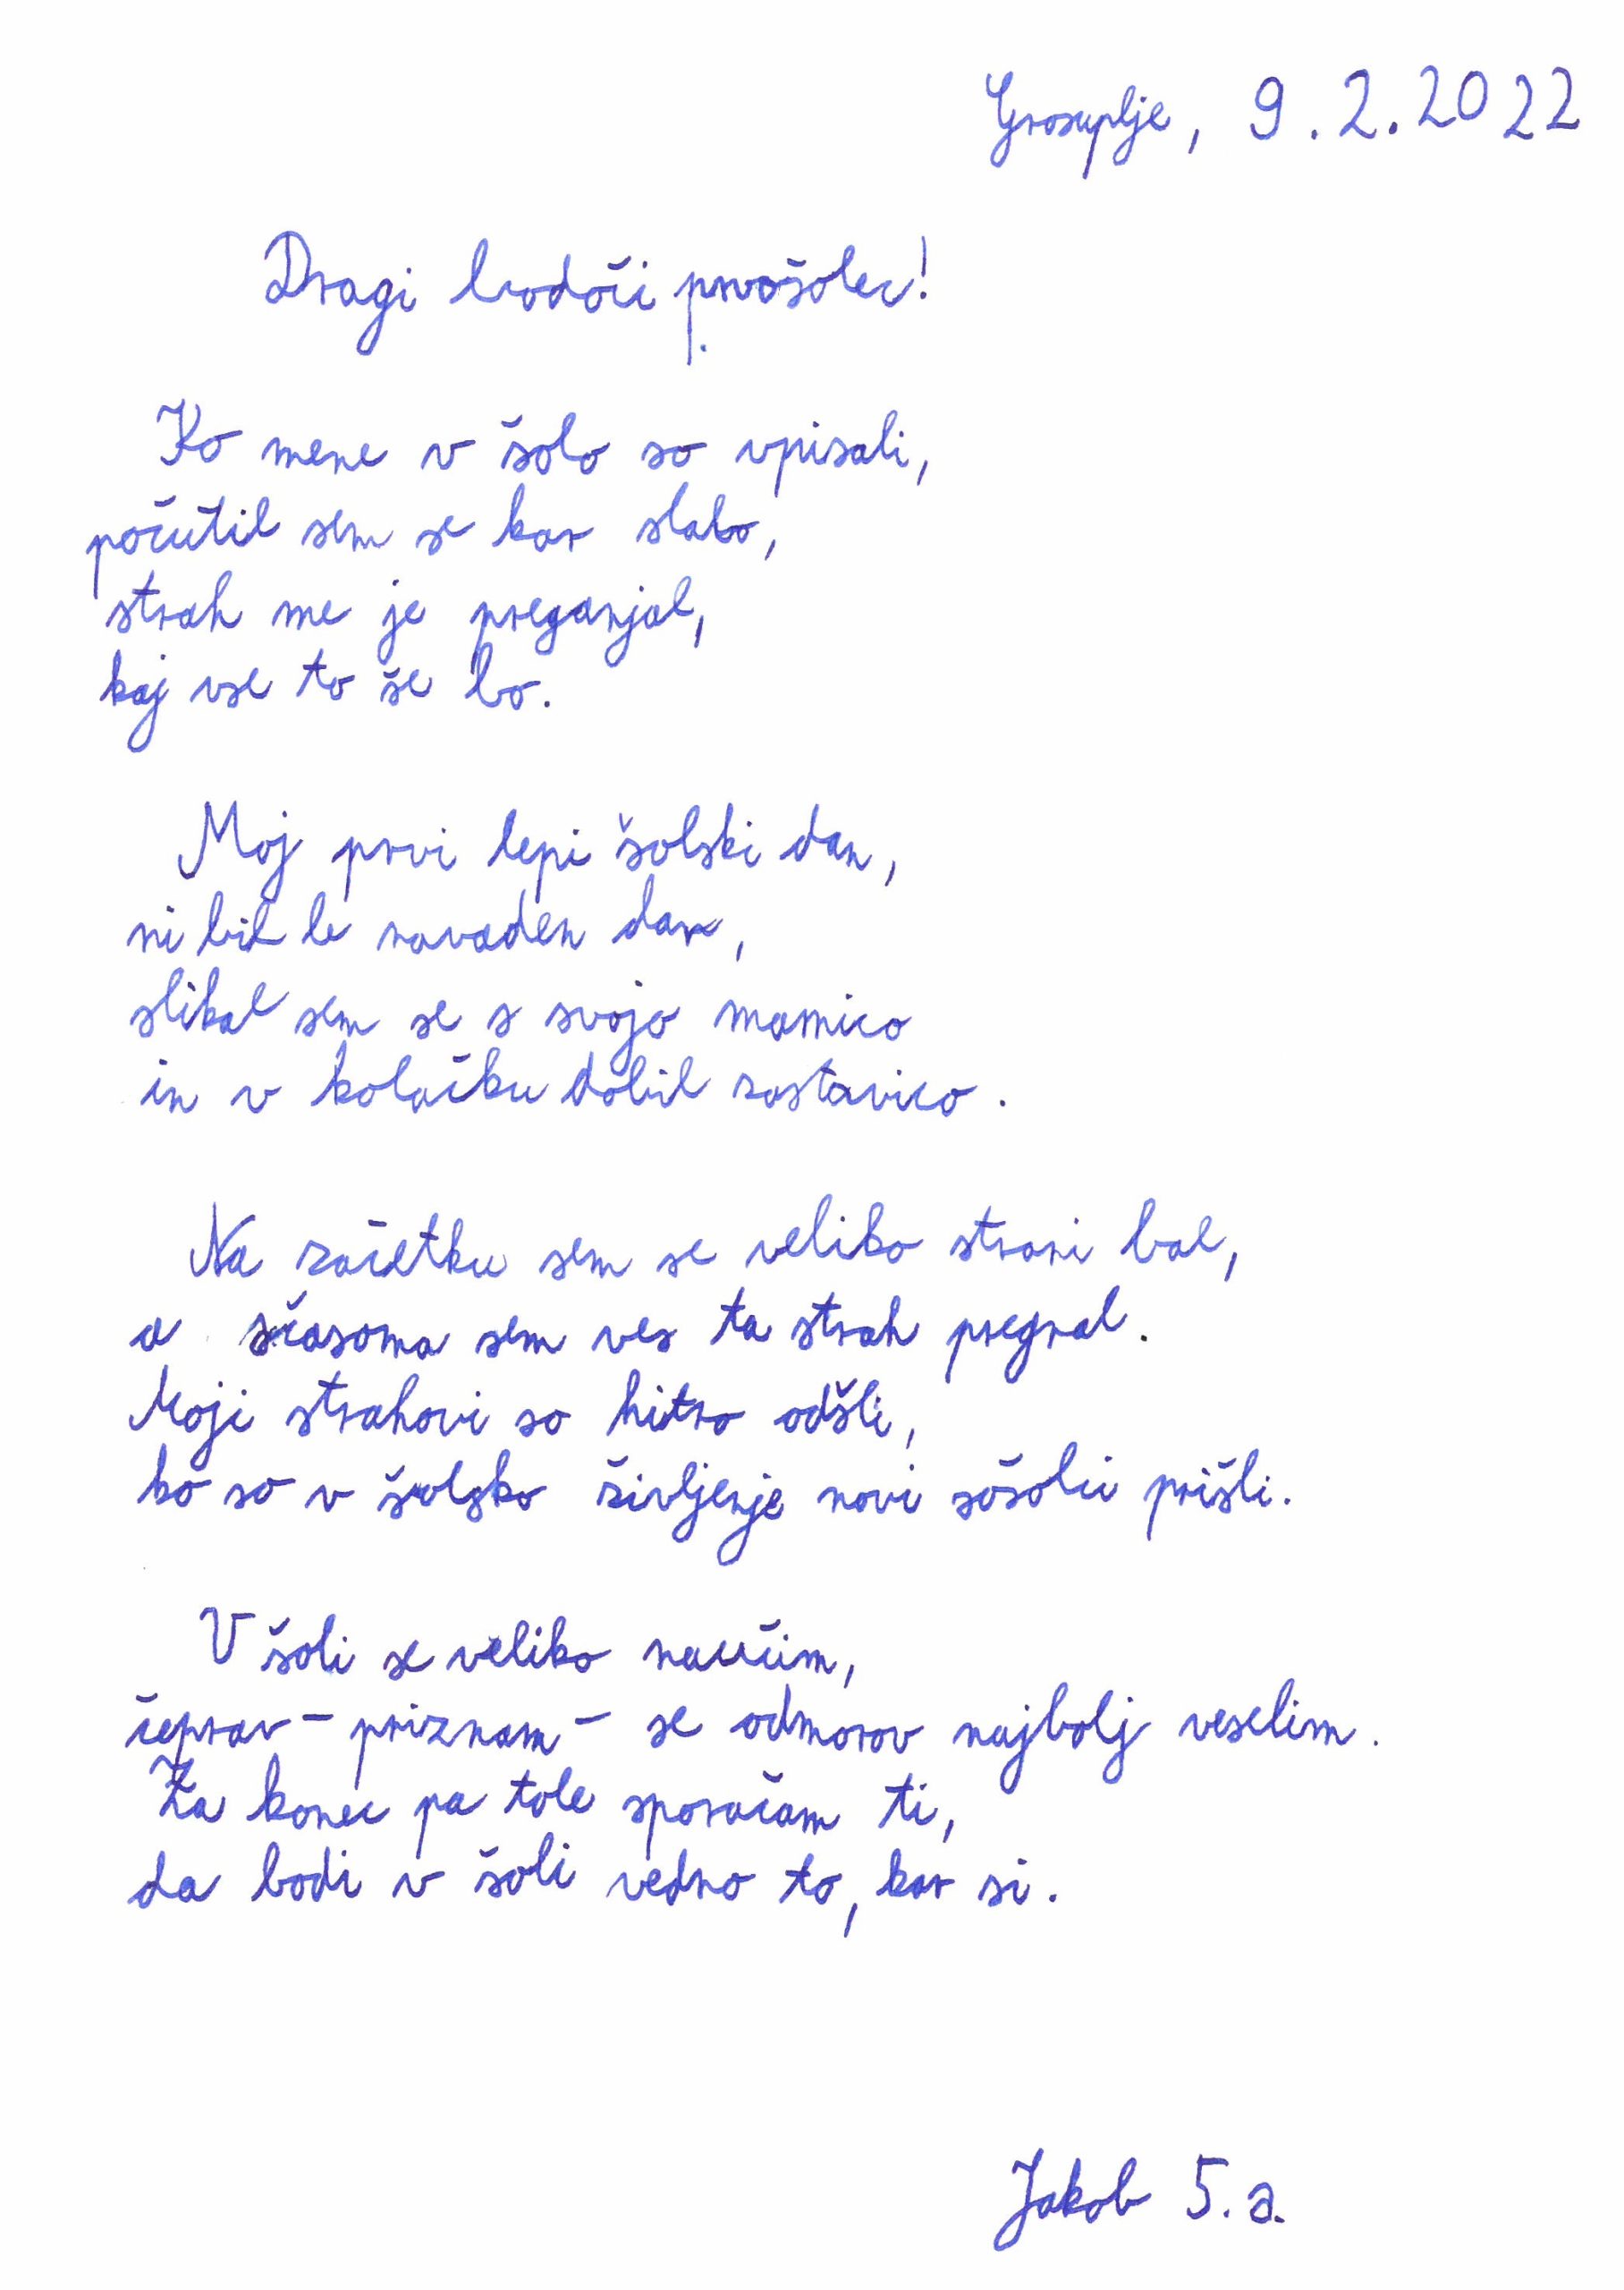 Grosuplje, 9.2.2022
Dragi bodoči prvošolec!
Ko mene v šolo so vpisali,
počutil sem se kar slabo,
strah me je preganjal,
kaj vse to še bo.
Moj prvi lepi šolski dan,
ni bil le navaden dan,
slikal sem se s svojo mamico
in v kolačku dobil zastavico.
Na začetku sem se veliko stvari bal,
a sčasoma sem ves ta strah pregnal.
Moji strahovi so hitro odšli,
ko so v šolsko življenje novi sošolci prišli.
V šoli se veliko naučim,
čeprav - priznam - se odmorov najbolj veselim.
Za konec pa tole sporočam ti,
da bodi v šoli vedno to, kar si.
Jakob 5.a.